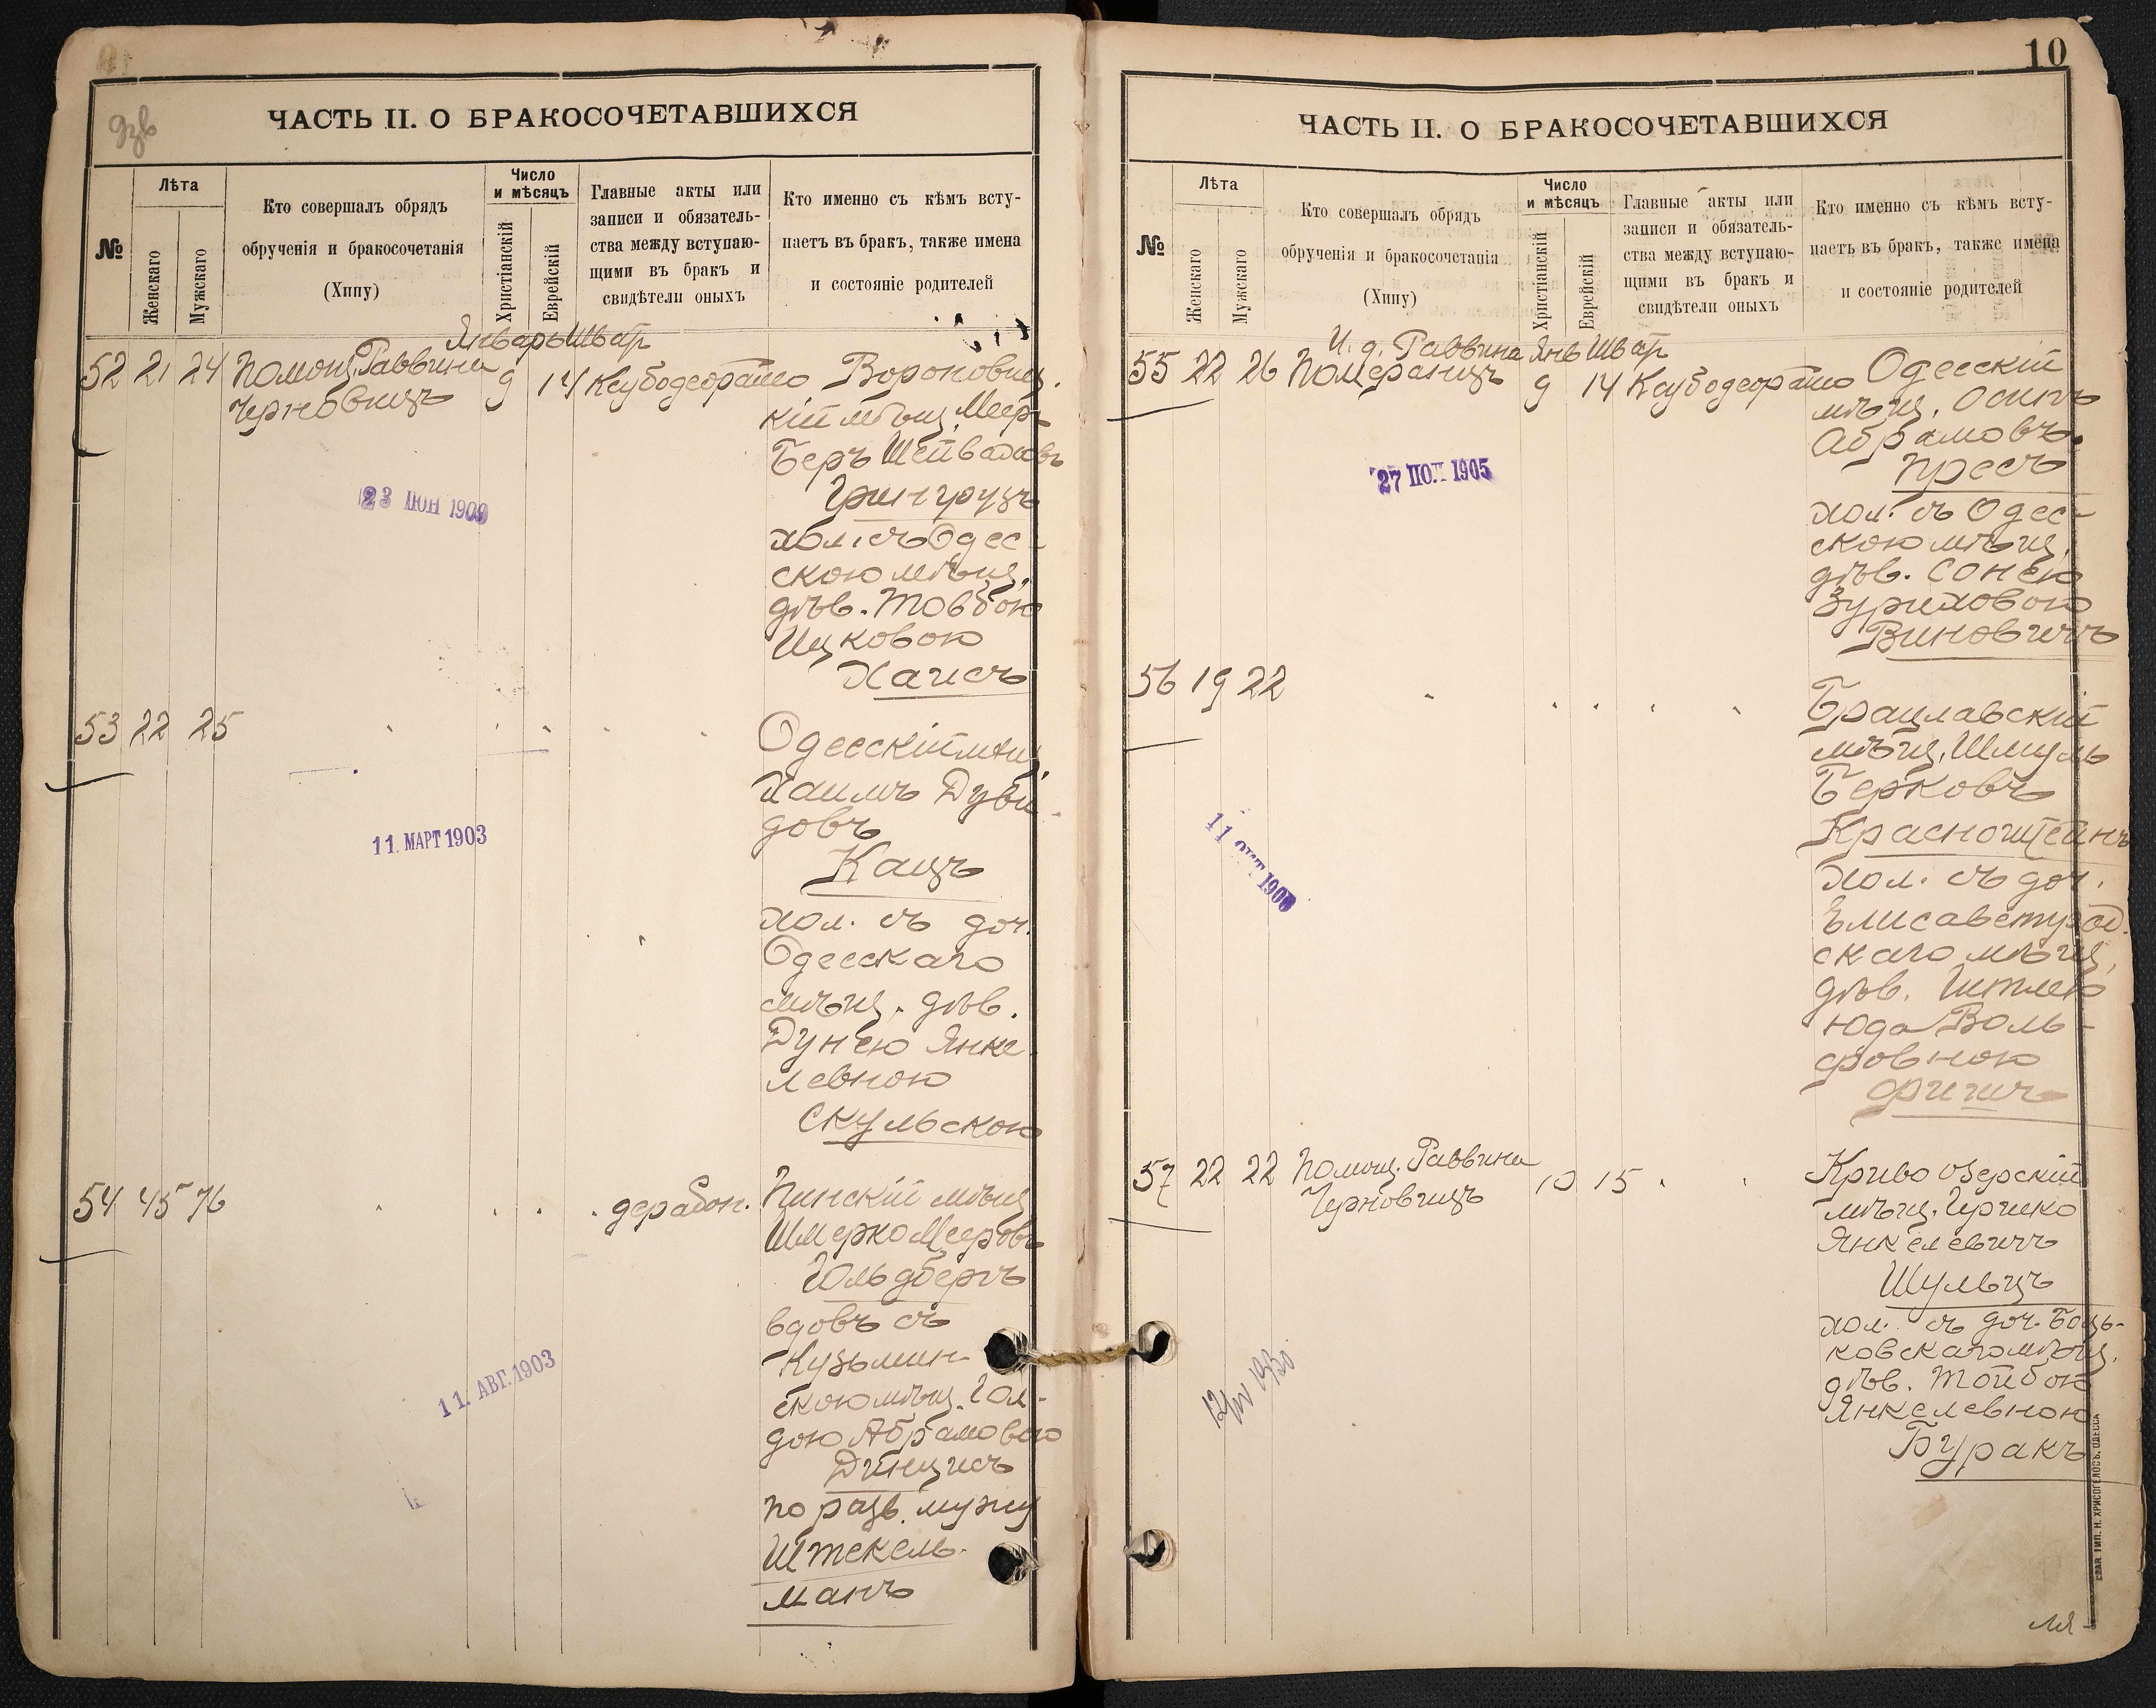 дзв
ЧАСТЬ II. О БРАКОСОЧЕТАВШИХСЯ
№
Лѣта
Женскаго
Мужскаго
Кто совершалъ обрядъ
обрученія и бракосочетанія
(Хипу)
Число
и мѣсяцъ
Христіанскій
Еврейскій
Главные акты или
записи и обязатель-
ства между вступаю-
щими въ бракъ и
свидѣтели оныхъ
Кто именно съ кѣмъ всту-
паетъ въ бракъ, также имена
и состояніе родителей
Январь Шватъ
52 21 24 Помощ. Раввина
Черновицъ
9 14
Вороновиц.
кій мѣщ. Меер-
Беръ
Грингрузъ
хол. съ Одес-
скою мѣщ.
дѣв. Товбою
Ицковою
Хаисъ
23 ІЮН 1909
53 22 25
Одесскій мѣщ.
Хаимъ Дуви-
довъ
Кацъ
хол. съ доч.
Одесскаго
мѣщ. дѣв.
Дунею Янке-
левною
Скульскою
11. МАРТ 1903
54 45 76
дерабон.
Пинскій мѣщ
Шмерко Мееровъ
Гольдбергъ
вдовъ съ
Кузьмин-
скою мѣщ. Гол-
дою Абрамовою
Динцисъ
по разв. мужу
Штекель-
манъ
11. АВГ. 1903
10
ЧАСТЬ II. О БРАКОСОЧЕТАВШИХСЯ
№
Лѣта
Женскаго
Мужскаго
Кто совершалъ обрядъ
обрученія и бракосочетанія
(Хипу)
Число
и мѣсяцъ
Христіанскій
Еврейскій
Главные акты или
записи и обязатель-
ства между вступаю-
щими въ бракъ и
свидѣтели оныхъ
Кто именно съ кѣмъ всту-
паетъ въ бракъ, также имена
и состояніе родителей
И. д. Раввина Янв Шват
55 22 26 Померанцъ
9 14
Одесскій
мѣщ. Осипъ
Абрамовъ
Пресъ
хол. съ Одес-
скою мѣщ.
дѣв. Сонею
Зуриховою
Виновичъ
27 1905
56 19 22
Брацлавскій
мѣщ. Шмуль
Берковъ
Красноштейнъ
хол. съ доч.
Елисаветград.
скаго мѣщ.
дѣв. Итлею
Юда Воль-
фовною
Фишъ
11 ОКТ 1900
57 22 22 Помощ. Раввина
Черновицъ
10 15
Криво озерскій
мѣщ. Гершко
Янкелевичъ
Шульцъ
хол. съ доч. Боць-
ковскаго мѣщ.
дѣв. Тойбою
Янкелевною
Буракъ
12/IV 1930
СЛАВ. ТИП. Н. ХРИСОГЕЛОСЪ, ОДЕССА